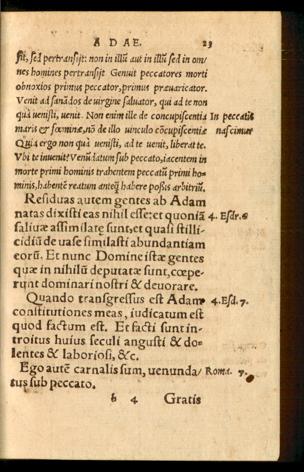 ADAE. 23
sit, sed pertransijt: non in illū aut in illū sed in om/
nes homines pertransijt Genuit peccatores morti
obnoxios primus peccator, primus præuaricator.
Venit ad sanādos de virgine saluator, qui ad te non
quà venisti, venit. Non enim ille de concupiscentia In peccatis
maris & fœminæ, nō de illo vinculo cōcupiscentiæ nascimur
Quia ergo non quà venisti, ad te venit, liberat te.
Vbi te inuenit? Venūdatum sub peccato, iacentem in
morte primi hominis trahentem peccatū primi ho-
minis, habentē reatum anteq̄ habere posses arbitriū.
Residuas autem gentes ab Adam
natas dixisti eas nihil esse: et quoniā 4. Esdr. 6
saliuæ assimilatę sunt, et quasi stilli-
cidiū de uase similasti abundantiam
eorū. Et nunc Domine istæ gentes
quæ in nihilū deputatæ sunt, cœpe-
runt dominari nostri & deuorare.
Quando transgressus est Adam 4. Esd. 7.
constitutiones meas, iudicatum est
quod factum est. Et facti sunt in-
troitus huius seculi angusti & do-
lentes & laboriosi, &c.
Ego autē carnalis sum, uenunda/ Roma. 7.
tus sub peccato.
b 4 Gratis